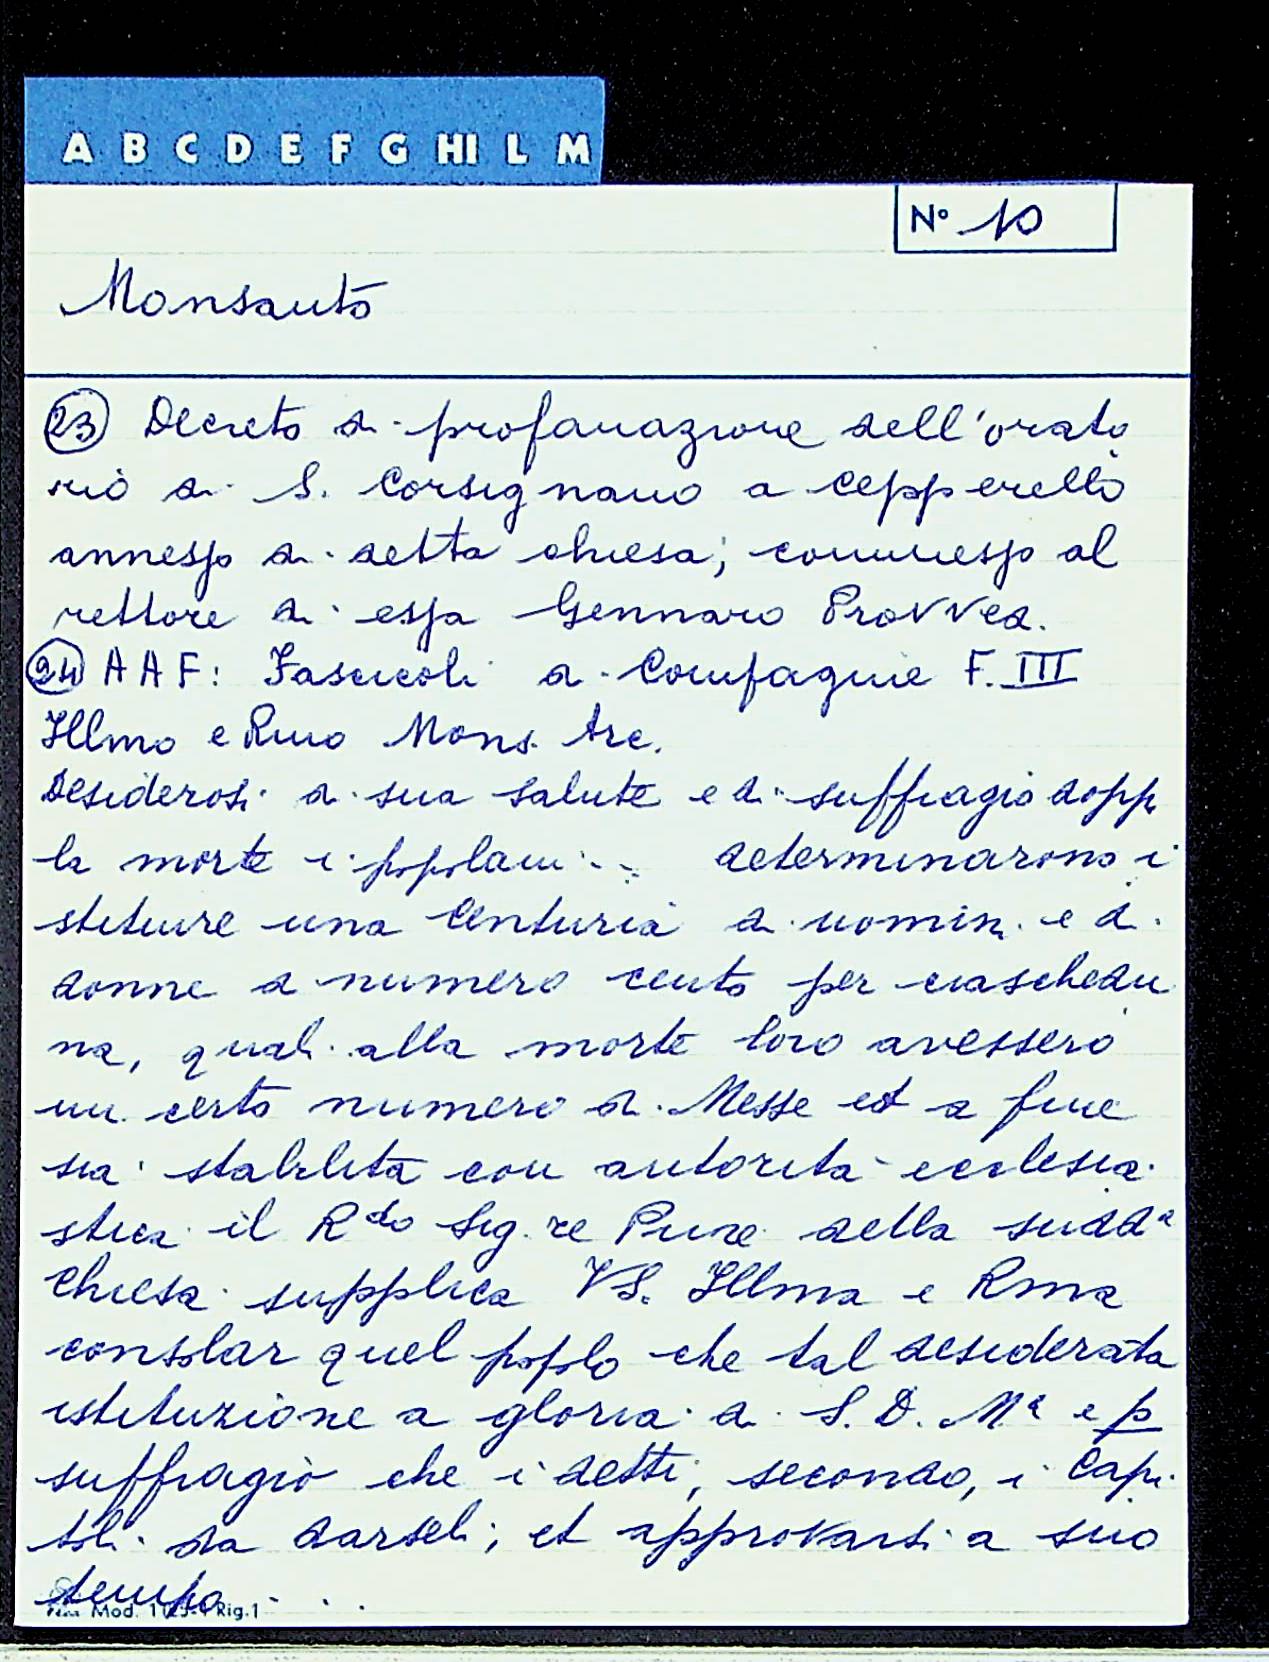 A B C D E F G HI L M
N° 10
Monsanto
23 Decreto di profanazione dell'orato
rio di S. Corsignano a Cepperello
annesso di detta chiesa; commesso al
rettore di essa Gennaro Provved.
24 A A F: Fascicoli di Compagnie F. III
Illmo e Rmo Mons. Arc.
Desiderosi di sua salute e di suffragio dopp
la morte i popolani ... determinarono i
stituire una Centuria di uomini e di
donne a numero cento per ciaschedu
na, quali alla morte loro avessero
un certo numero di Messe ed a fine
sia stabilita con autorità ecclesia
stica il Rdo Sig.re Priore della sudda
Chiesa supplica VS. Illma e Rma
consolar quel popolo che tal desiderata
istituzione a gloria di S. D. Ma e p
suffragio che i detti, secondo, i Capi
toli da darseli; et approvarsi a suo
tempo . . .
Mod. Rig.1